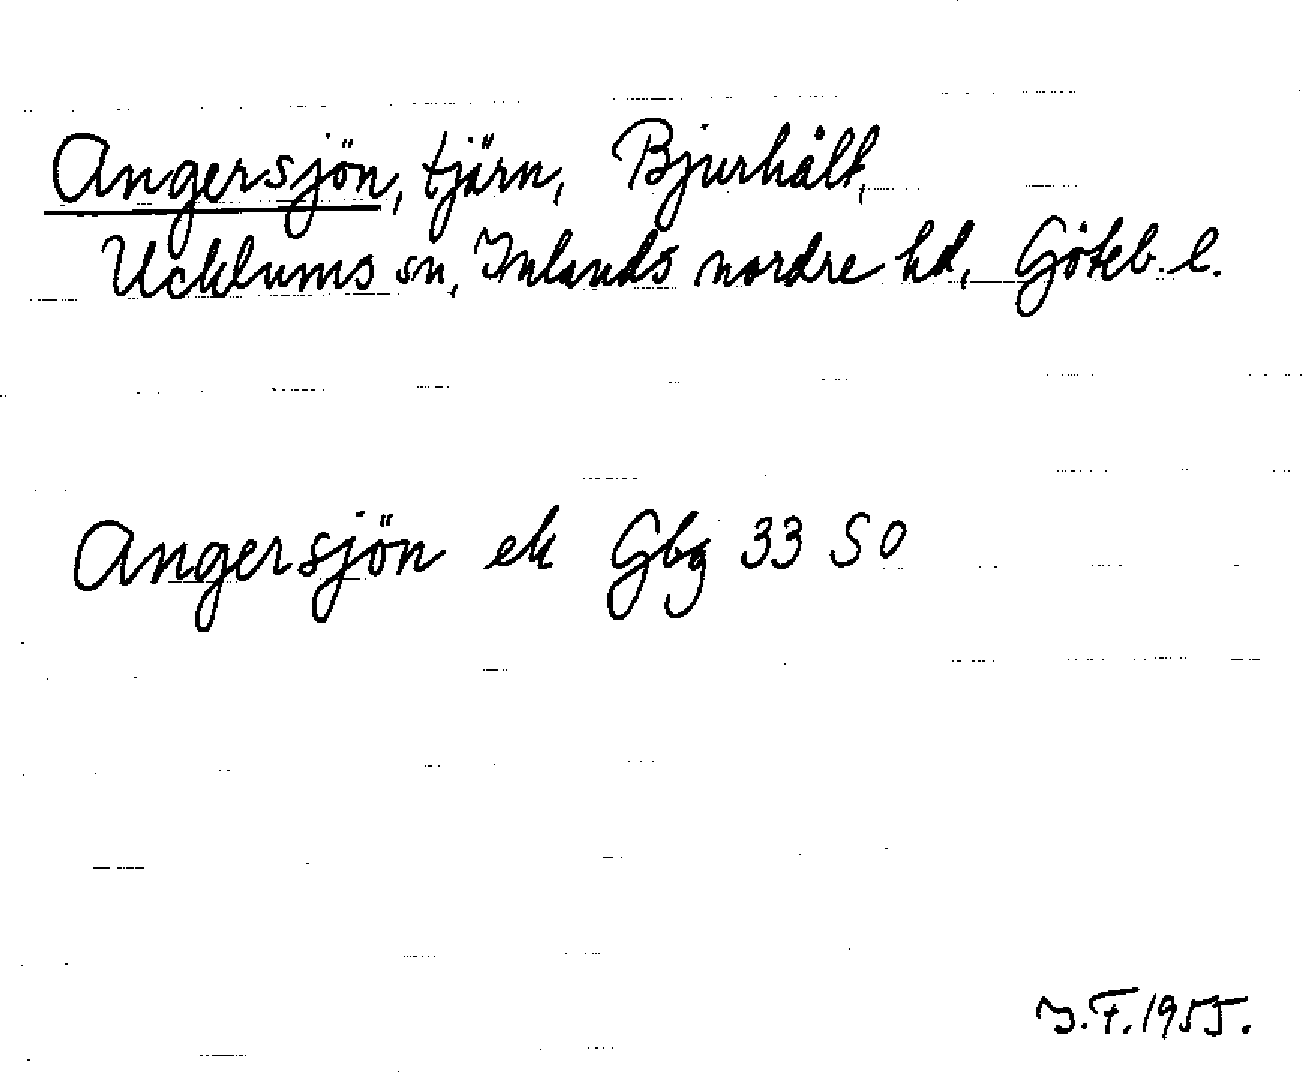 Angersjön, tjärn, Bjurhält,
Ucklums sn, Inlands nordre hd, Göteb. l.
Angersjön ek Gbg 33 SO
I.F. 1955.